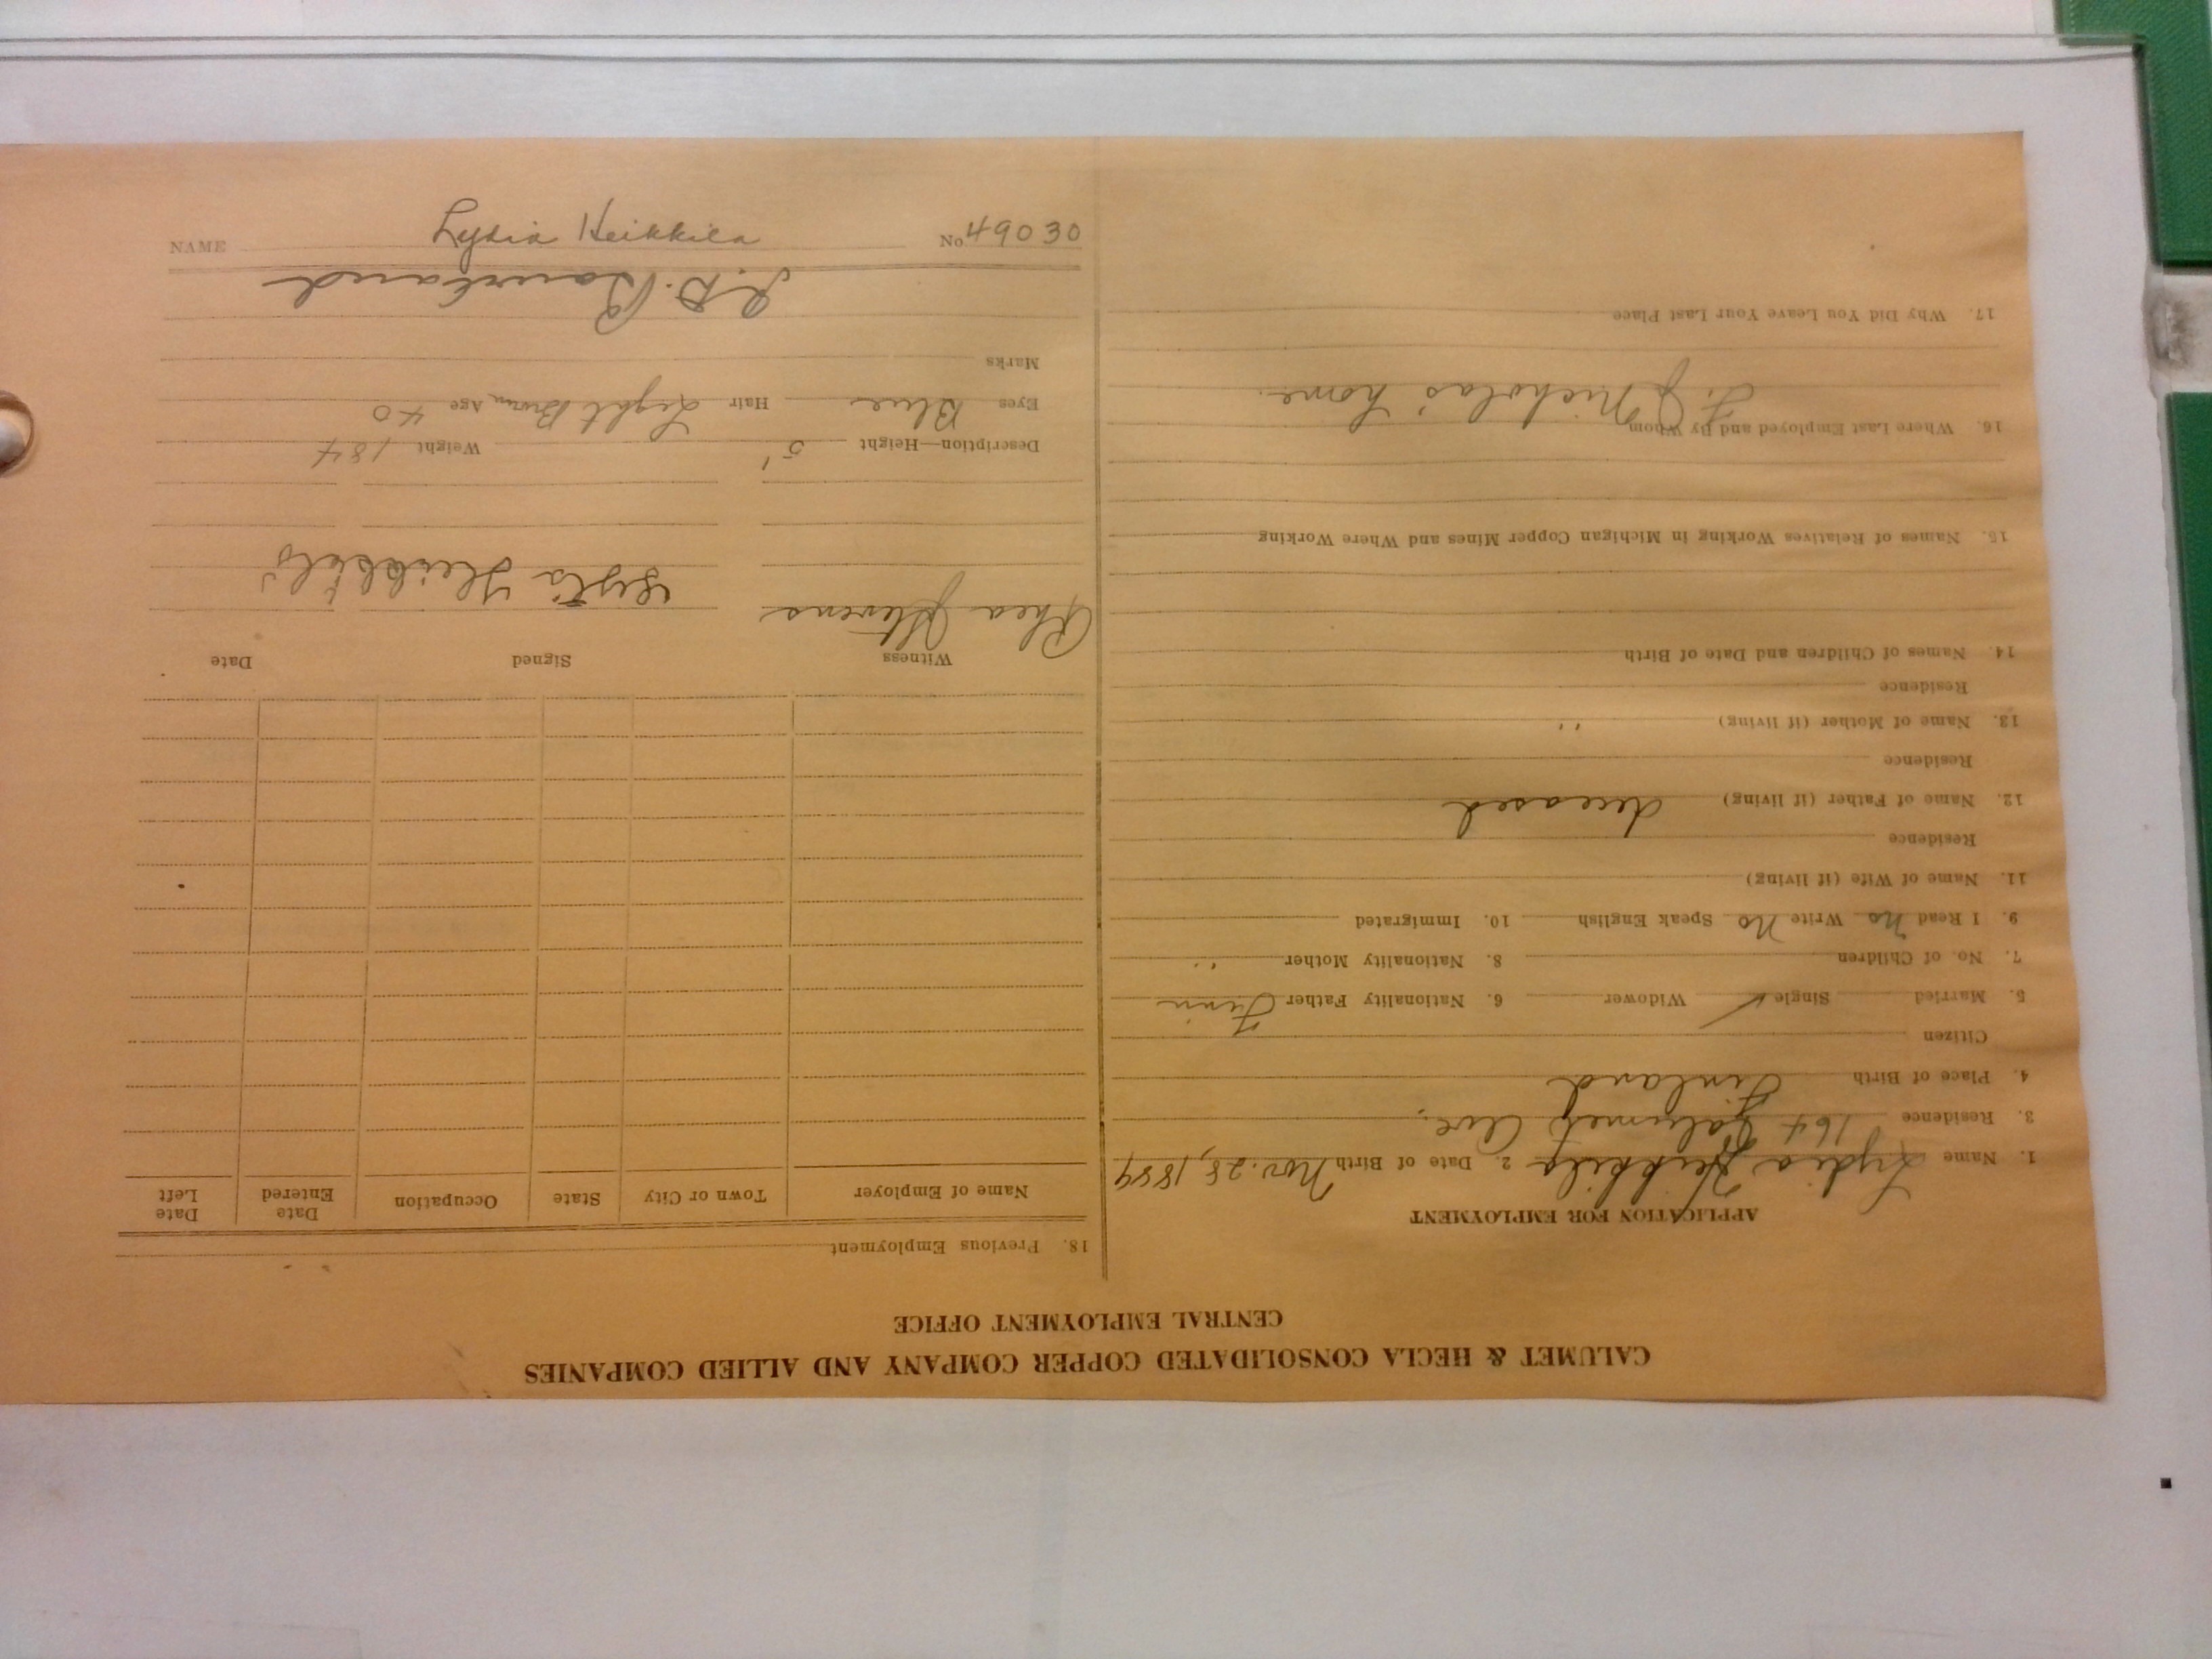 CALUMET & HECLA CONSOLIDATED COPPER COMPANY AND ALLIED COMPANIES
CENTRAL EMPLOYMENT OFFICE
APPLICATION FOR EMPLOYMENT
1. Name Lydia Heikkila 2. Date of Birth Nov. 28, 1889
3. Residence 164 Calumet Ave.
4. Place of Birth Finland
Citizen
5. Married Single ✓ Widower 6. Nationality Father Finn
7. No. of Children 8. Nationality Mother "
9. I Read no Write no Speak English 10. Immigrated
11. Name of Wife (if living)
Residence
12. Name of Father (if living) deceased
Residence
13. Name of Mother (if living) "
Residence
14. Names of Children and Date of Birth
15. Names of Relatives Working in Michigan Copper Mines and Where Working
16. Where Last Employed and By Whom
F. J. Nicholas' home.
17. Why Did You Leave Your Last Place
18. Previous Employment
Name of Employer Town or City State Occupation Date Entered Date Left
Witness Signed Date
Rhea Stevens
Description—Height 5' Weight 184
Eyes Blue Hair Light Brown Age 40
Marks
NAME Lydia Heikkila No 49030